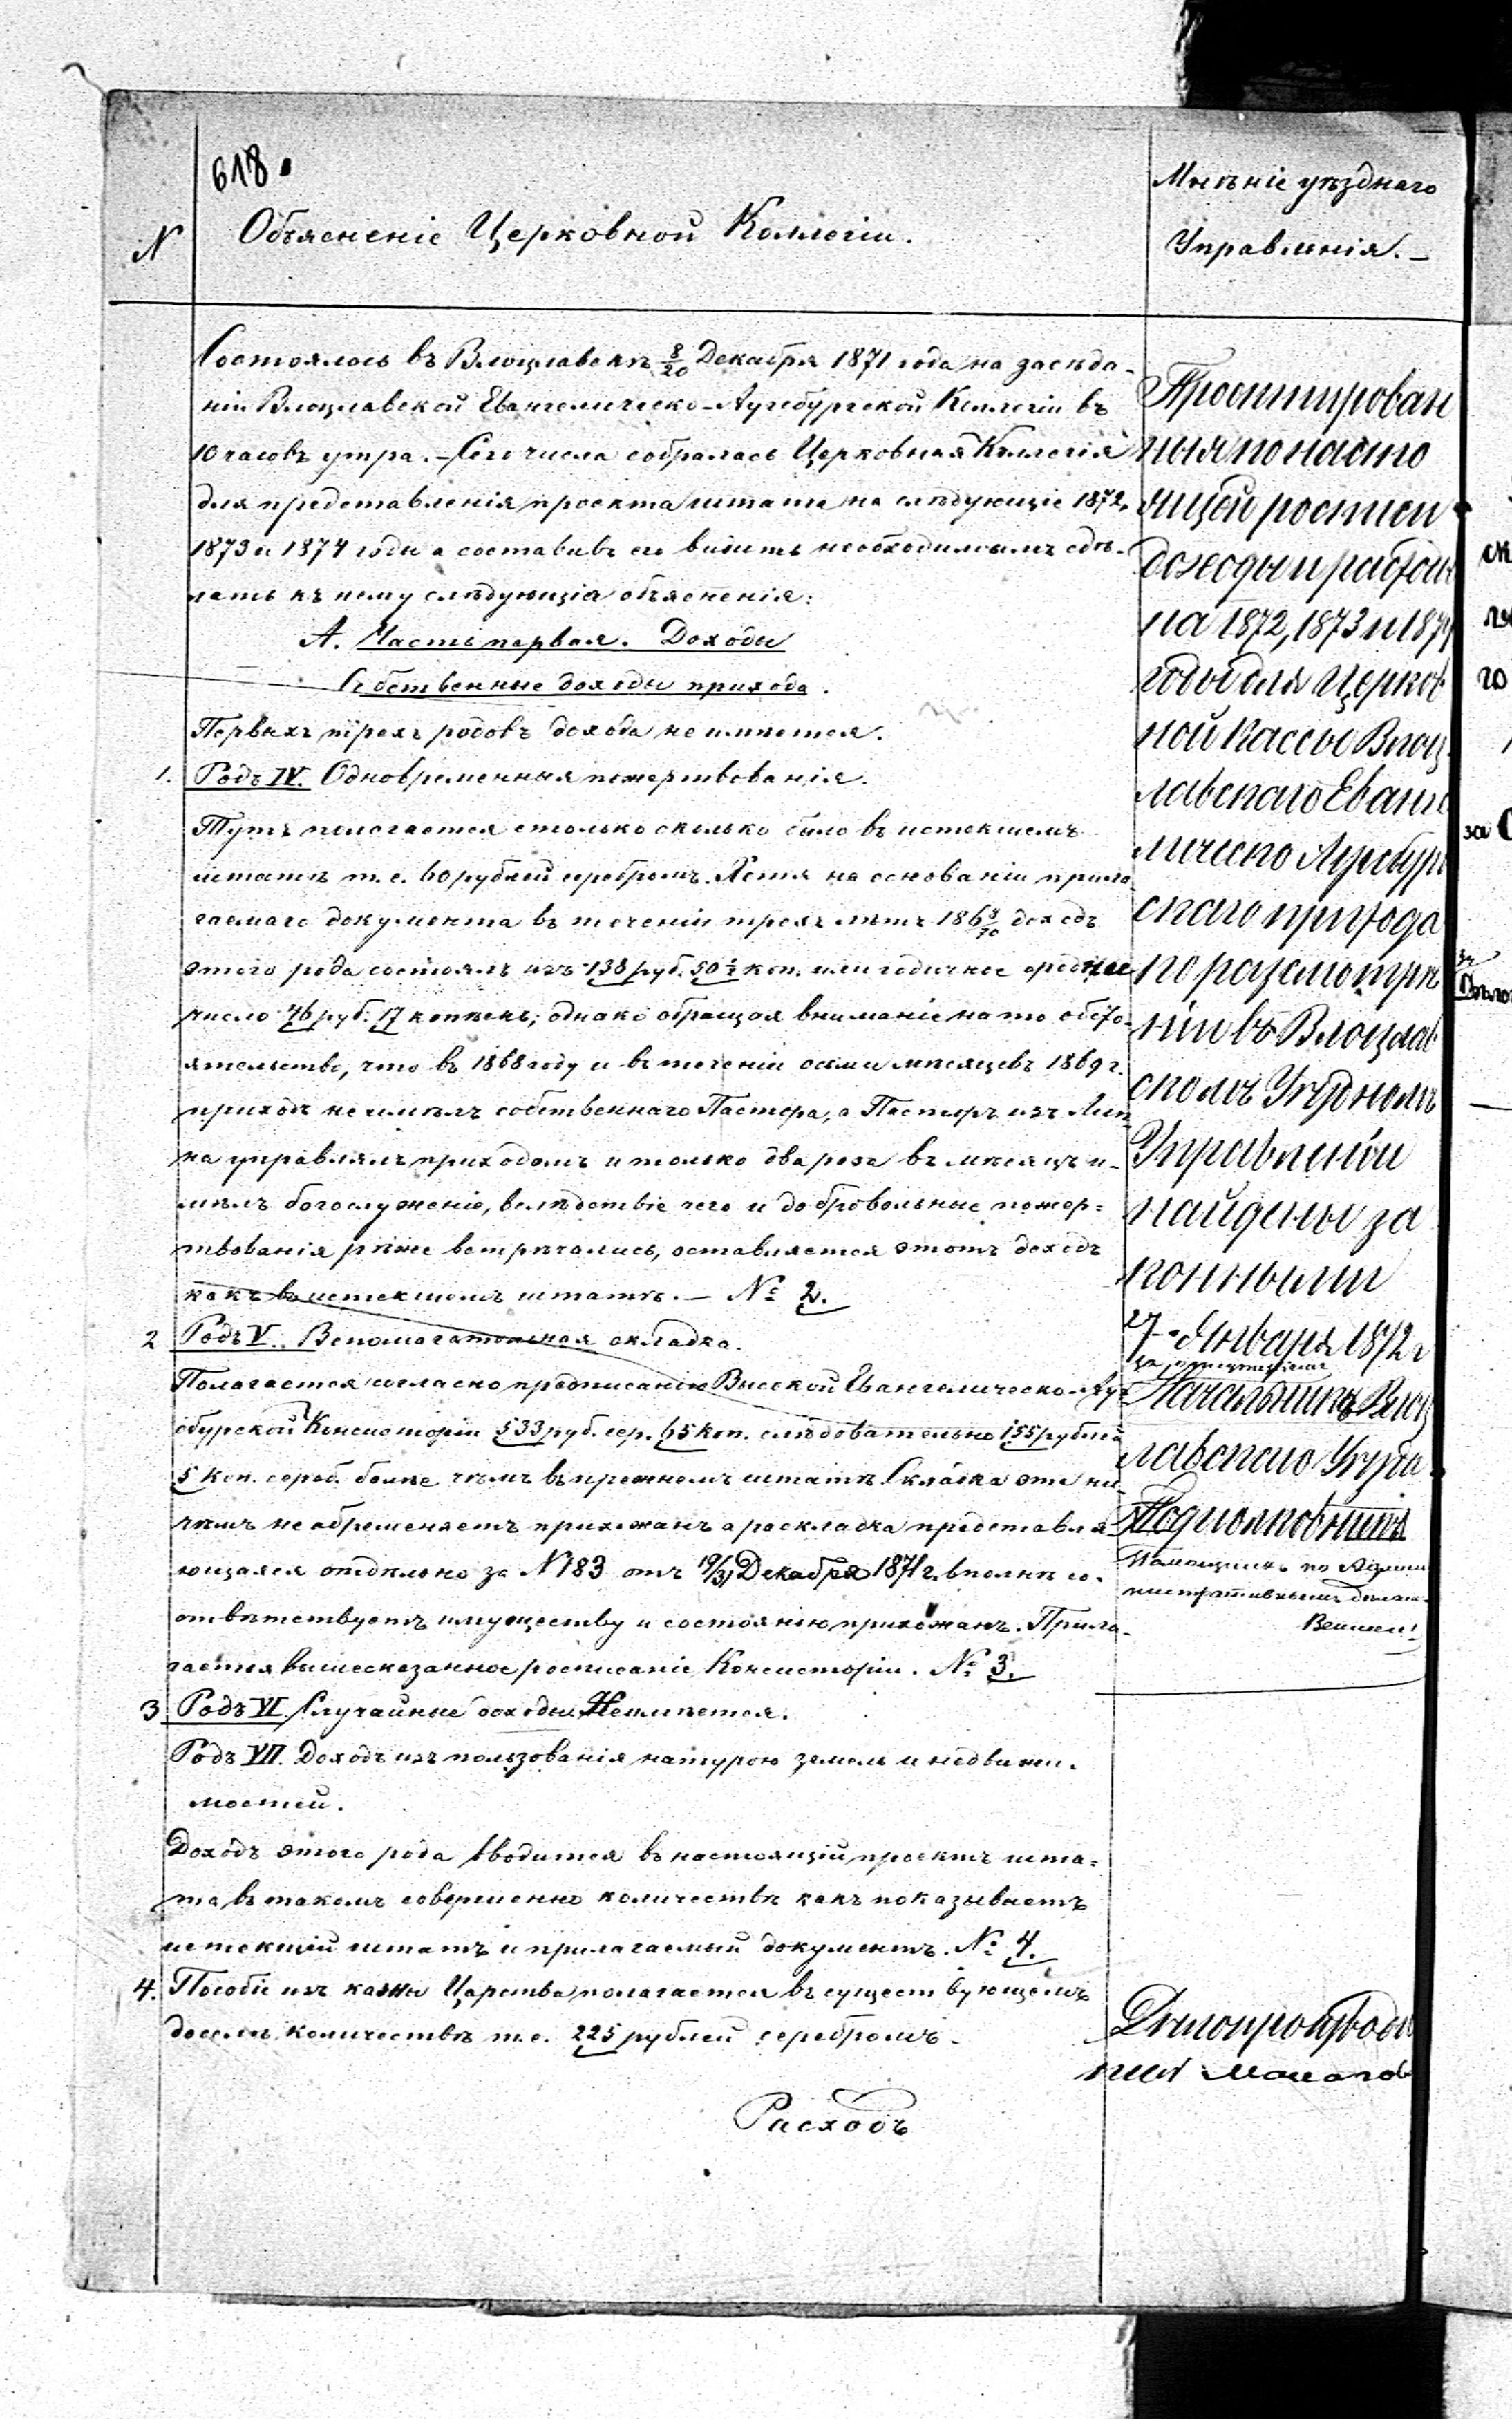 618.
N
Объясненіе Церковной Коллегіи.
Мнѣніе уѣзднаго
Управленія. —
Состоялось въ Влоцлавскѣ 8/20 Декабря 1871 года на засѣда-
ніи Влоцлавской Евангелическо-Аугсбургской Коллегіи въ
10 часовъ утра. — Сего числа собралась Церковная Коллегія
для представленія проекта штата на слѣдующіе 1872,
1873 и 1874 годы а составивъ его видитъ необходимымъ сдѣ-
лать къ нему слѣдующія объясненія:
А. Часть первая. Доходы
Собственные доходы прихода.
Первыхъ трехъ родовъ дохода не имѣется.
1. Родъ IV. Одновременныя пожертвованія.
Тутъ полагается столько сколько было въ истекшемъ
штатѣ т. е. 60 рублей серебромъ. Хотя на основаніи прила-
гаемаго документа въ теченіи трехъ лѣтъ 1868/70 доходъ
этого рода состоялъ изъ 138 руб. 50 1/2 коп. или годичное среднее
число 46 руб. 17 копѣекъ; однако обращая вниманіе на то обсто-
ятельство, что въ 1868 году и въ теченіи осьми мѣсяцевъ 1869 г.
приходъ не имѣлъ собственнаго Пастора, а Пасторъ изъ Лип-
на управлялъ приходомъ и только два раза въ мѣсяцъ и-
мѣлъ богослуженіе, вслѣдствіе чего и добровольные пожер-
твованія рѣже встрѣчались, оставляется этотъ доходъ
какъ въ истекшемъ штатѣ. — № 2.
2 Родъ V. Вспомогательная складка.
Полагается согласно предписанію Высокой Евангелическо-Ауг-
сбурской Консисторіи 533 руб. сер. 65 коп. слѣдовательно 155 рублей
5 коп. сереб. болѣе чѣмъ въ прежнемъ штатѣ. Складка эта ни-
чѣмъ не обременяетъ прихожанъ а раскладка представля-
ющаяся отдѣльно за N 183 отъ 19/31 Декабря 1871 г. вполнѣ со-
отвѣтствуетъ имуществу и состоянію прихожанъ. Прила-
гается вышесказанное росписаніе Консисторіи. № 3.
3 Родъ VI. Случайные доходы. Неимѣется.
Родъ VII. Доходъ изъ пользованія натурою земель и недвижи-
мостей.
Доходъ этого рода вводится въ настоящій проектъ шта-
та въ такомъ совершенно количествѣ какъ показываетъ
истекшій штатъ и прилагаемый документъ. № 4.
4. Пособіе изъ казны Царства полагается въ существующемъ
доселѣ количествѣ т. е. 225 рублей серебромъ. —
Расходъ
Проектирован
ныя по насто
ящей росписи
доходы и расходы
на 1872, 1873 и 1874
годы для Церков
ной Кассы Влоц
лавскаго Еванге
лическо Аугсбург
скаго прихода
по разсмотрѣ
ніи въ Влоцлав
скомъ Уѣздномъ
Управленіи
найдены за
конными
27 Января 1872 г
Начальникъ Влоц
лавскаго Уѣзда
Подполковникъ
Помощникъ по Адми
нистративнымъ дѣламъ
Делопроизводи
тель